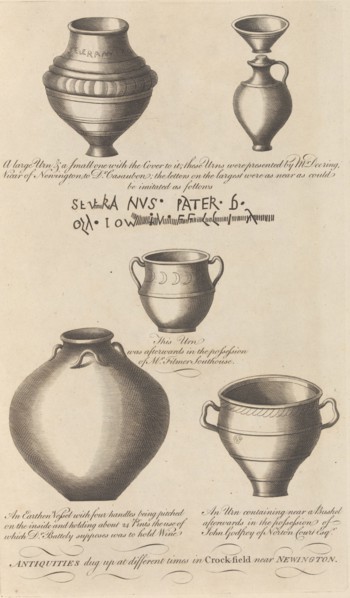 A large Urn & a small one with the Cover to it; these Urns were presented by Mr. Deering,
Vicar of Newington, to Dr. Casaubon; the letters on the largest were as near as could
be imitated as follows
SEVERANVS. PATER.
This Urn
was afterwards in the possession
of Mr. Filmer Southouse.
An Earthen Vessel with four handles being pitched
on the inside and holding about 24 Pints the use of
which Dr. Battely supposes was to hold Wine.
An Urn containing near a Bushel
afterwards in the possession of
John Godfrey of Norton Court Esqr.
ANTIQUITIES dug up at different times in Crockfield near NEWINGTON.